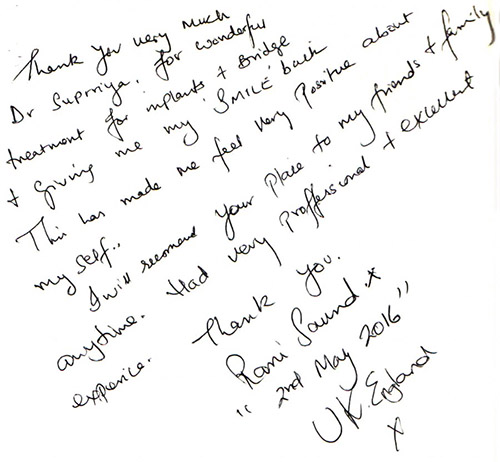 Thank You very Much
Dr Supriya. for wonderful
treatment for implants + Bridge
+ giving me my 'SMILE' back
This has made me feel very Positive about
my self..
I will recomend your Place to my friends + family
anytime. Had very proffessional + excellent
experince. Thank you.
Rani Saund.x
" 2nd May 2016 "
UK. England
X